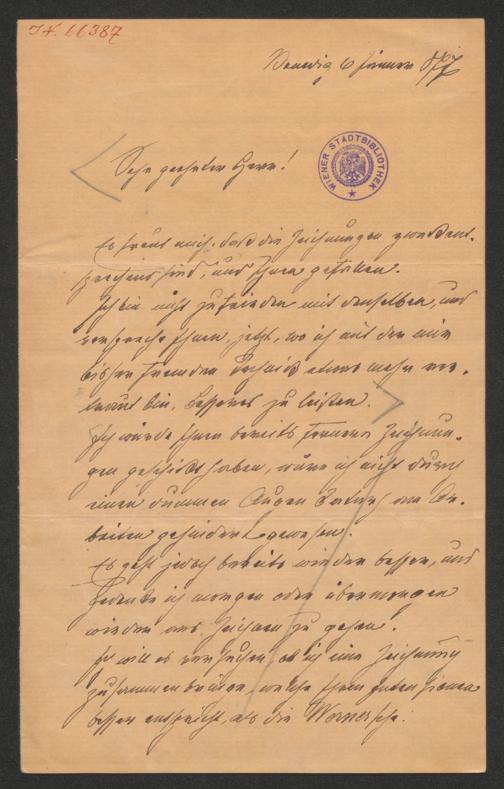 I.N. 66387
Venedig 6 Jänner 877
Sehr geehrter Herr!
WIENER STADTBIBLIOTHEK
Es freut mich, daß die Zeichnungen zweckent-
sprechend sind, und Ihnen gefallen.
Ich bin nicht zufrieden mit denselben, und
verspreche Ihnen, jetzt, wo ich mit der mir
bisher fremden Technik etwas mehr ver-
traut bin, besseres zu leisten.
Ich würde Ihnen bereits fernere Zeichnun-
gen geschickt haben, wäre ich nicht durch
einen dummen Augen am Ar-
beiten gehindert gewesen.
Es geht jedoch bereits wieder besser, und
gedenke ich morgen oder übermorgen
wieder ans Zeichnen zu gehen.
Ich will es versuchen, ob ich eine Zeichnung
zusammenbringe, welche Ihren
besser entspricht, als die Wernersche.